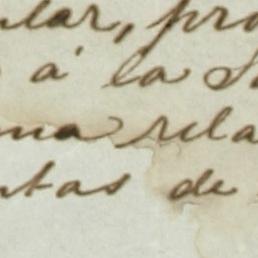 ular, pro
á la S
ma rela
ntas de